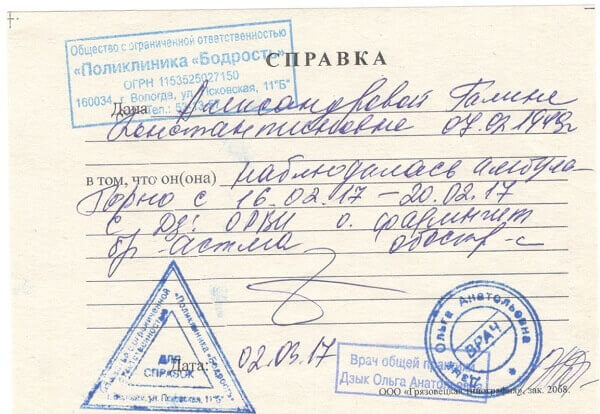 Общество с ограниченной ответственностью
«Поликлиника «Бодрость»
ОГРН 1153525027150
160034, г. Вологда, ул. Псковская, 11"Б"
СПРАВКА
Дана Александровой Галине
Константиновне 07.02.1949г
в том, что он(она) наблюдалась амбула-
торно с 16.02.17 – 20.02.17
с Дз: ОРВИ о. фарингит
бр. астма обостр-е
«Поликлиника «Бодрость»
ДЛЯ
СПРАВОК
Дата: 02.03.17
Ольга Анатольевна
ВРАЧ
Врач общей практики
Дзык Ольга Анатольевна
ООО «Грязовецкая типография», зак. 2068.